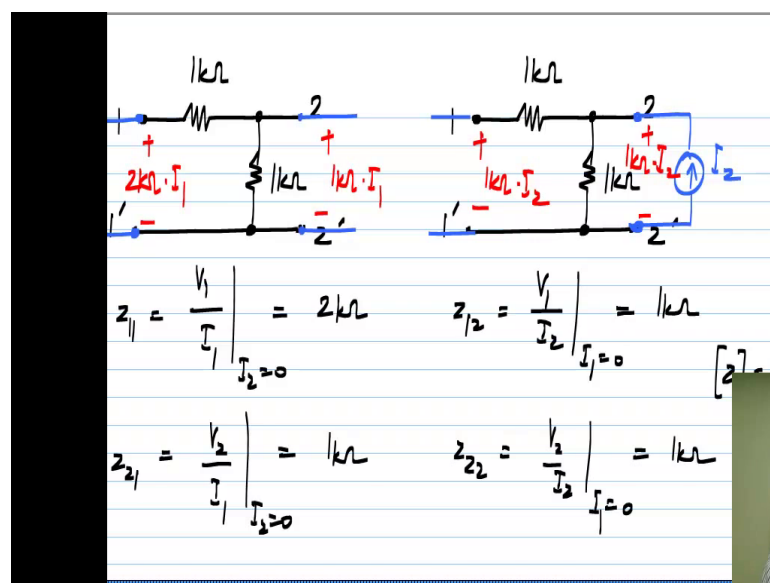 1kΩ 1kΩ
1 2 1 2
+ + + +
2kΩ·I₁ 1kΩ 1kΩ·I₁ 1kΩ·I₂ 1kΩ 1kΩ·I₂ I₂
− − − −
1′ 2′ 1′ 2′
z₁₁ = V₁/I₁ |I₂=0 = 2kΩ z₁₂ = V₁/I₂ |I₁=0 = 1kΩ
[z] =
z₂₁ = V₂/I₁ |I₂=0 = 1kΩ z₂₂ = V₂/I₂ |I₁=0 = 1kΩ